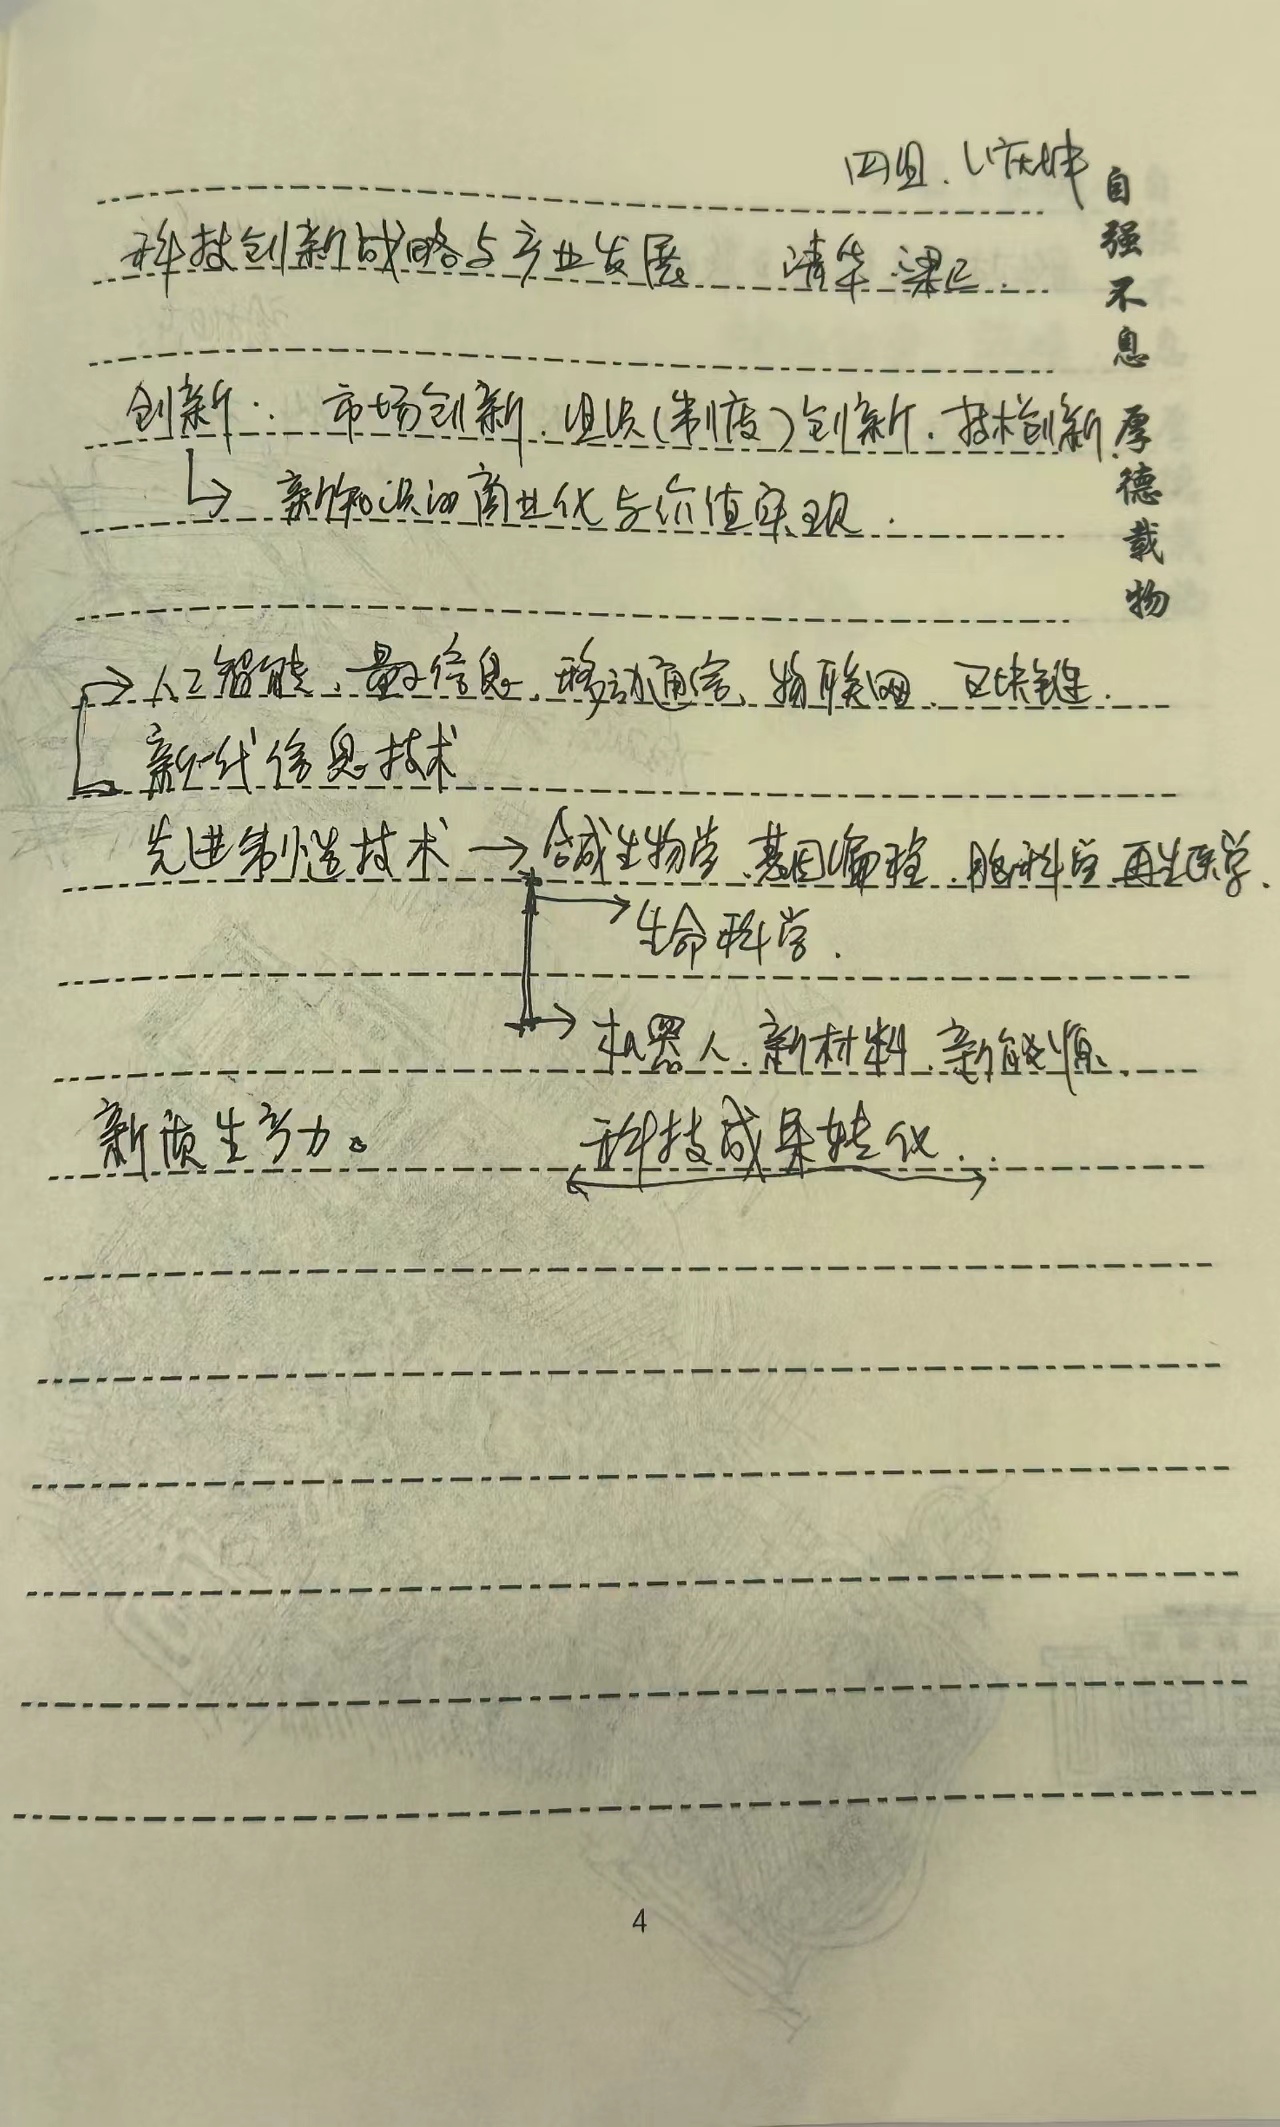 四组.
科技创新战略与产业发展 清华 梁正.
创新: 市场创新、组织(制度)创新、技术创新
新知识的商业化与价值实现.
人工智能、量子信息、移动通信、物联网、区块链.
新一代信息技术
先进制造技术 → 合成生物学、基因编程、脑科学、再生医学.
生命科学.
机器人、新材料、新能源、
新质生产力。 科技成果转化..
自强不息 厚德载物
4